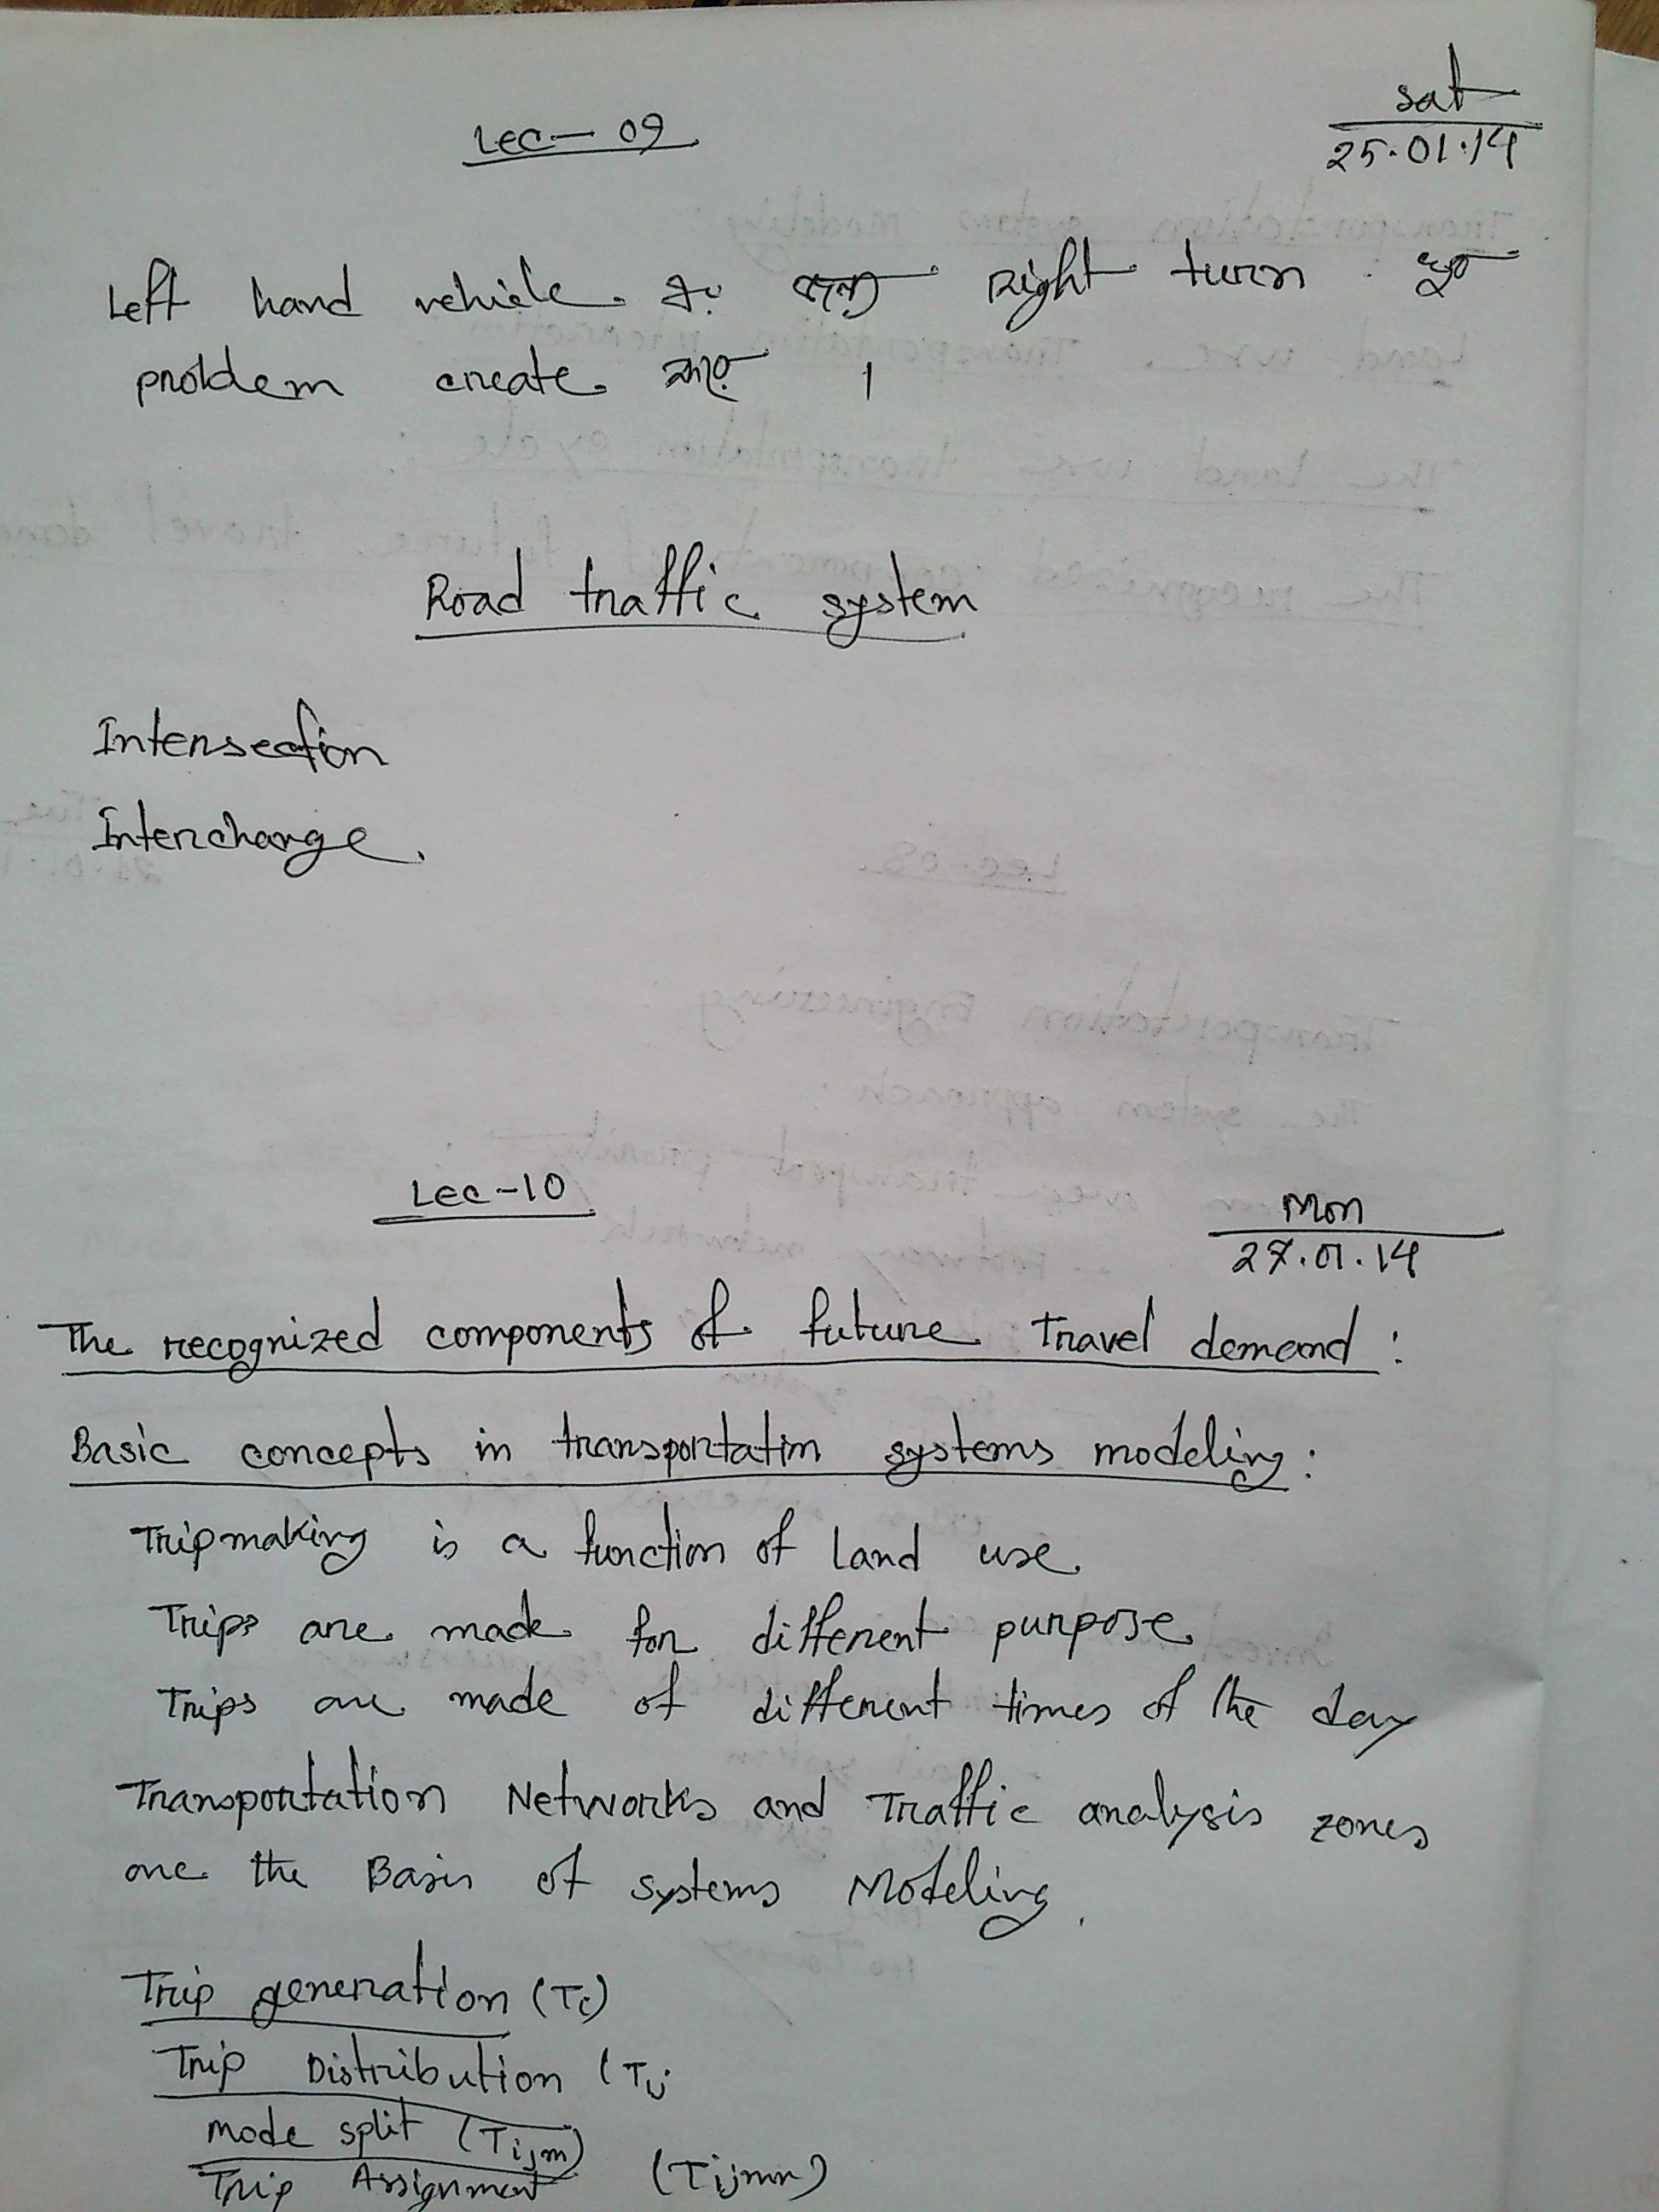 Lec - 09
sat
25.01.14
Left hand vehicle right turn
problem create করে ।
Road traffic system
Intersection
Interchange.
Lec-10
Mon
27.01.14
The recognized components of future Travel demand :
Basic concepts in transportation systems modeling :
Tripmaking is a function of Land use.
Trips are made for different purpose.
Trips are made of different times of the day
Transportation Networks and Traffic analysis zones
are the Basis of systems Modeling.
Trip generation (Ti)
Trip Distribution (Tij
mode split (Tijm)
Trip Assignment (Tijmr)